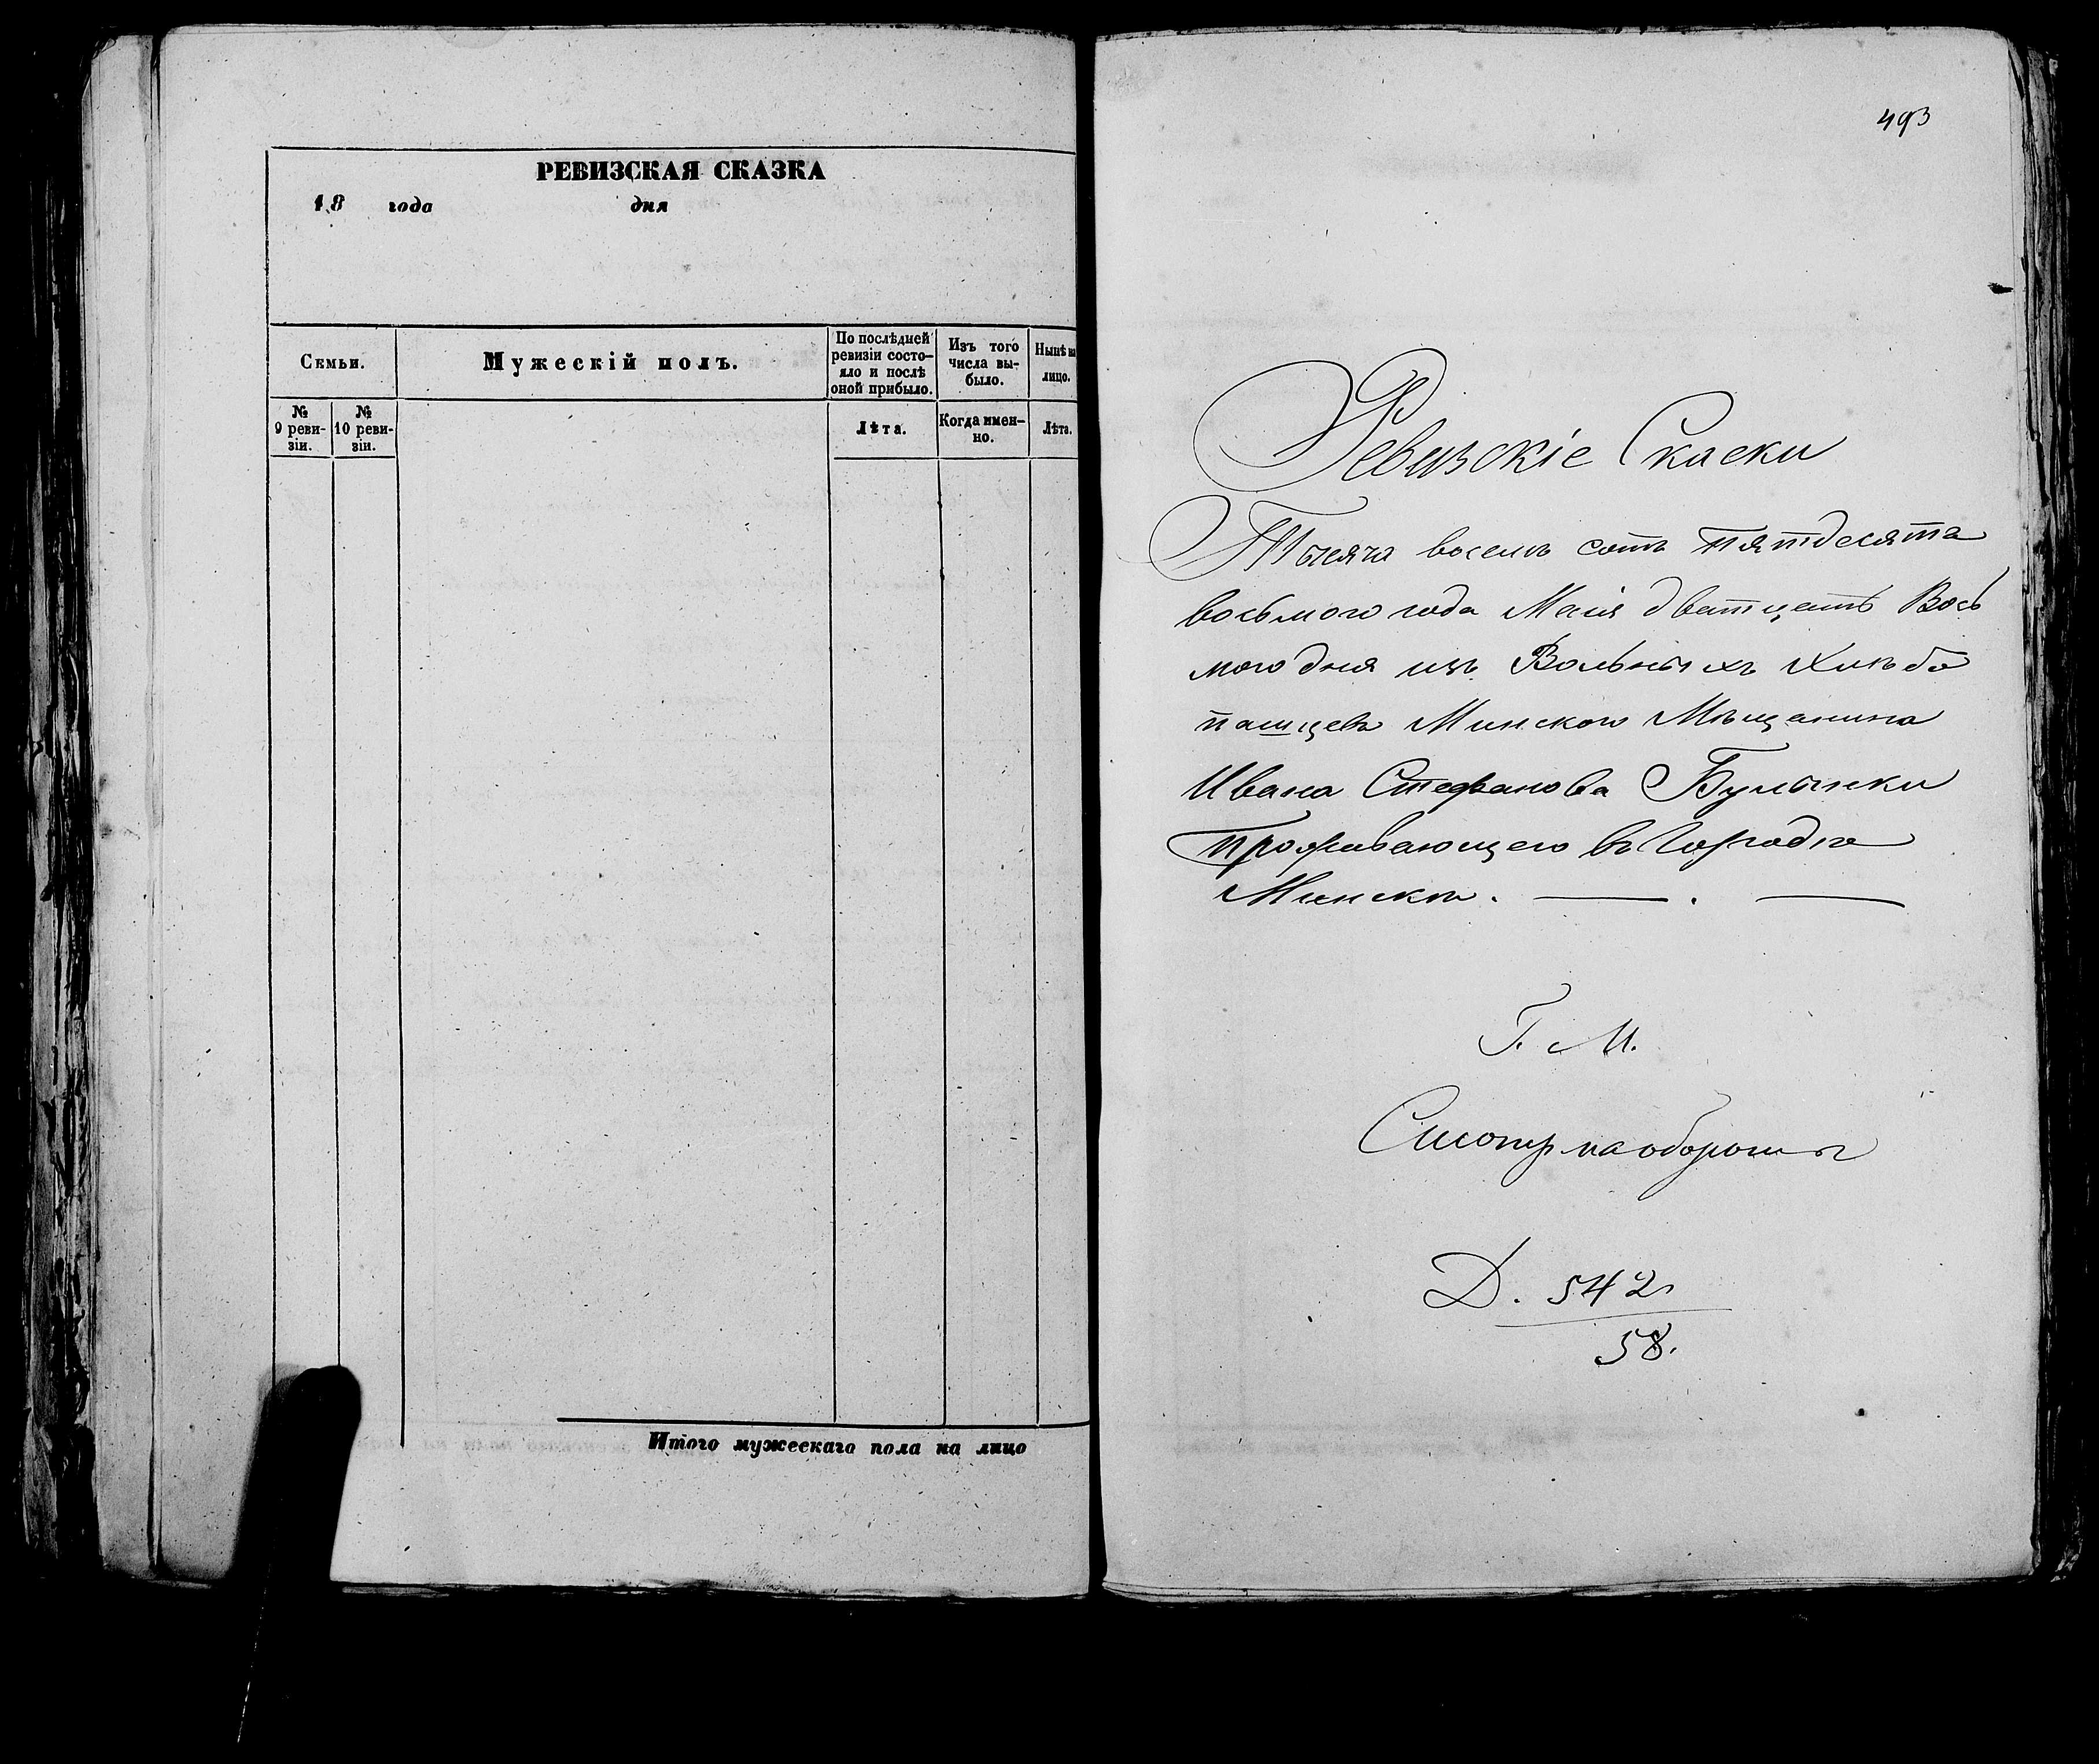 РЕВИЗСКАЯ СКАЗКА
18 года дня
Семьи.
Мужескій полъ.
По послѣдней
ревизіи состо-
яло и послѣ
оной прибыло.
Изъ того
числа вы-
было.
Нынѣ на
лицо.
№
9 реви-
зіи.
№
10 реви-
зіи.
Лѣта.
Когда имен-
но.
Лѣта.
Итого мужескаго пола на лицо
493
Ревизскіе Скаски
Тысяча восемь сотъ пятдесята
восьмого года Маія дватцать Вось
мого дня изъ Вольныхъ Хлѣбо
пашцевъ Минского Мѣщанина
Ивана Стефанова Булынки
проживающего въ Городѣ
Минскѣ.
Г. М.
Смотр на оборотѣ
Д. 542
58.